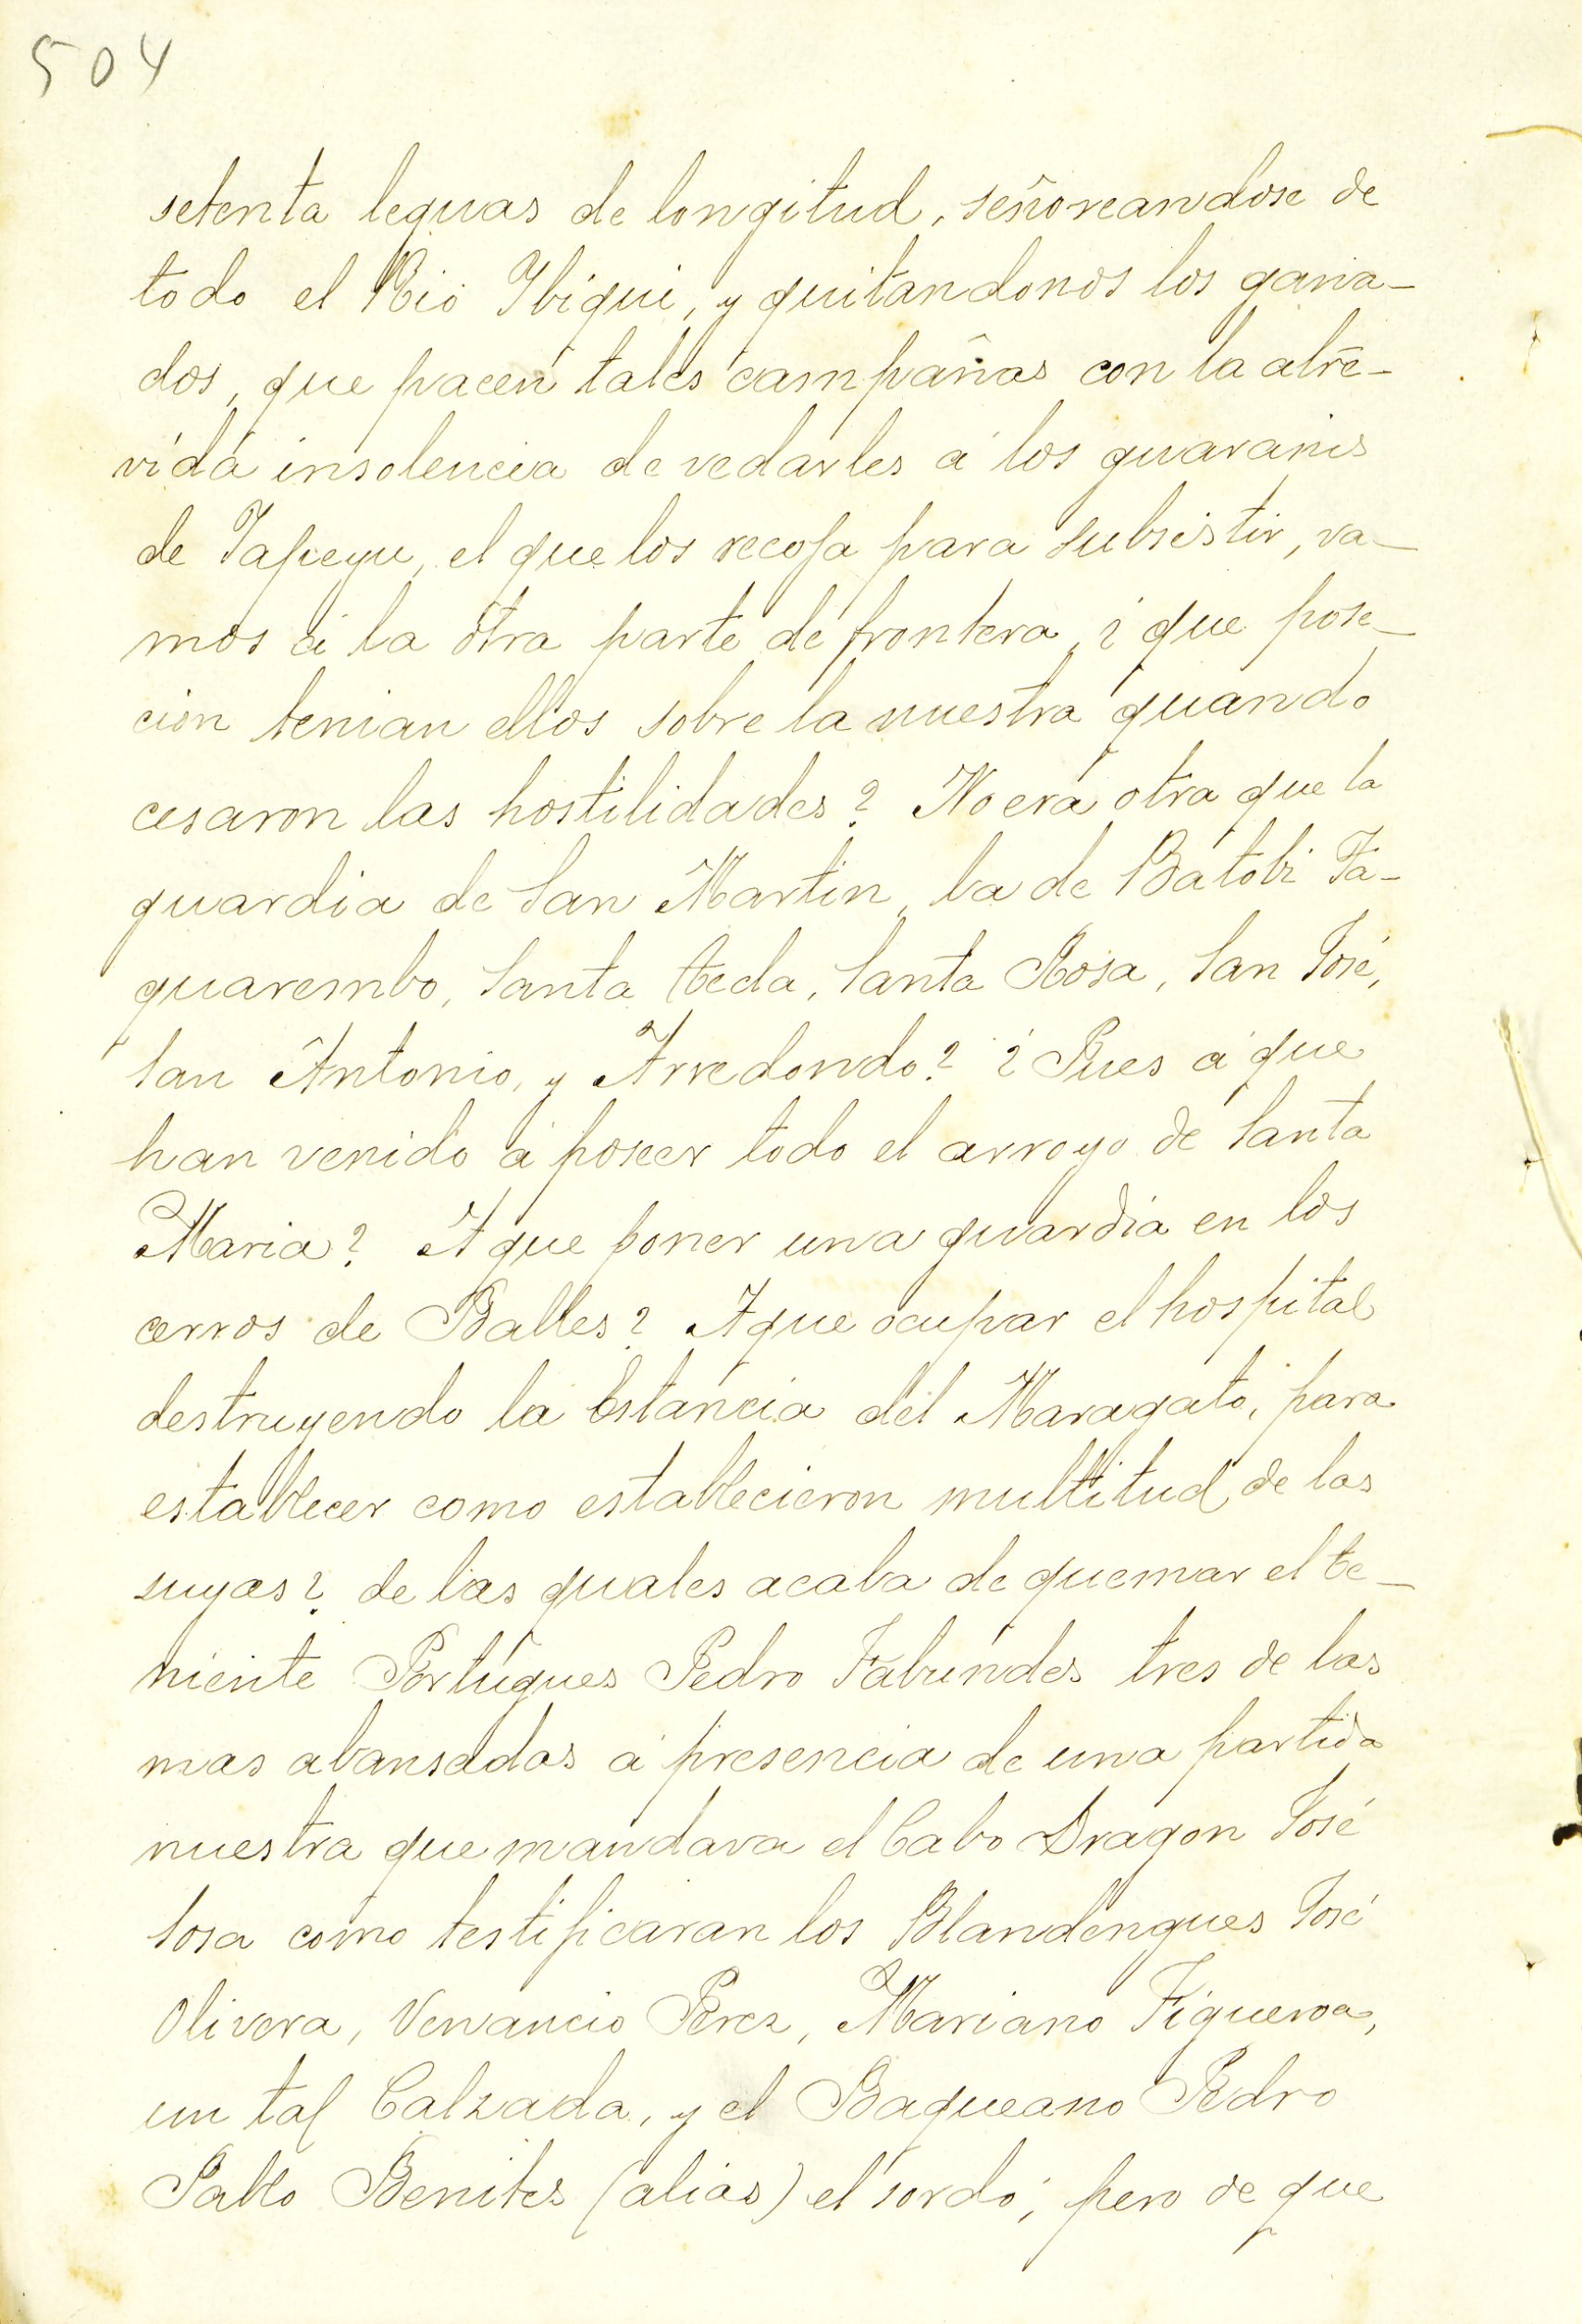 504
setenta leguas de longitud, señoreandose de
todo el Rio Ibiqui, y quitandonos los gana-
dos, que pacen tales campañas con la atre-
vida insolencia de vedarles á los guaranis
de Yapeyu, el que los recoja para subsistir, va-
mos á la otra parte de frontera, ¿que pose-
cion tenian ellos sobre la nuestra quando
cesaron las hostilidades? No era otra que la
guardia de San Martin, la de Batobi Ta-
quarembo, Santa Tecla, Santa Rosa, San José,
San Antonio, y Arredondo? ¿Pues á que
han venido á poseer todo el arroyo de Santa
Maria? A que poner una guardia en los
cerros de Balles? A que ocupar el hospital
destruyendo la Estancia del Maragato, para
establecer como establecieron multitud de las
suyas? de las quales acaba de quemar el te-
niente Portugues Pedro Fabundes tres de las
mas abansadas á presencia de una partida
nuestra que mandava el Cabo Dragon José
Sosa como testificaran los Blandengues José
Olivera, Venancio Perez, Mariano Figueroa,
un tal Calzada, y el Baqueano Pedro
Pablo Benites (alias) el sordo; pero de que